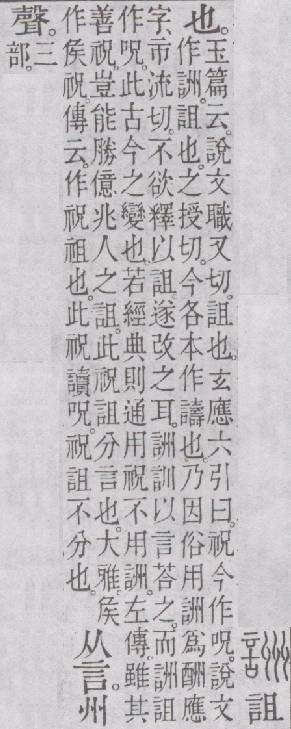 詶 詛
也。
玉篇云。說文職又切。詛也。玄應六引曰。祝今作呪。說文
作詶。詛也。之授切。今各本作譸也。乃因俗用詶爲酬應
字、市流切。不欲釋以詛。遂改之耳。詶訓以言荅之。而詶詛
作呪。此古今之變也。若經典則通用祝不用詶。左傳。雖其
善祝。豈能勝億兆人之詛。此祝詛分言也。大雅。矦
作矦祝。傳云。作祝祖也。此祝讀呪。祝詛不分也。
从言。州
聲。
三
部。